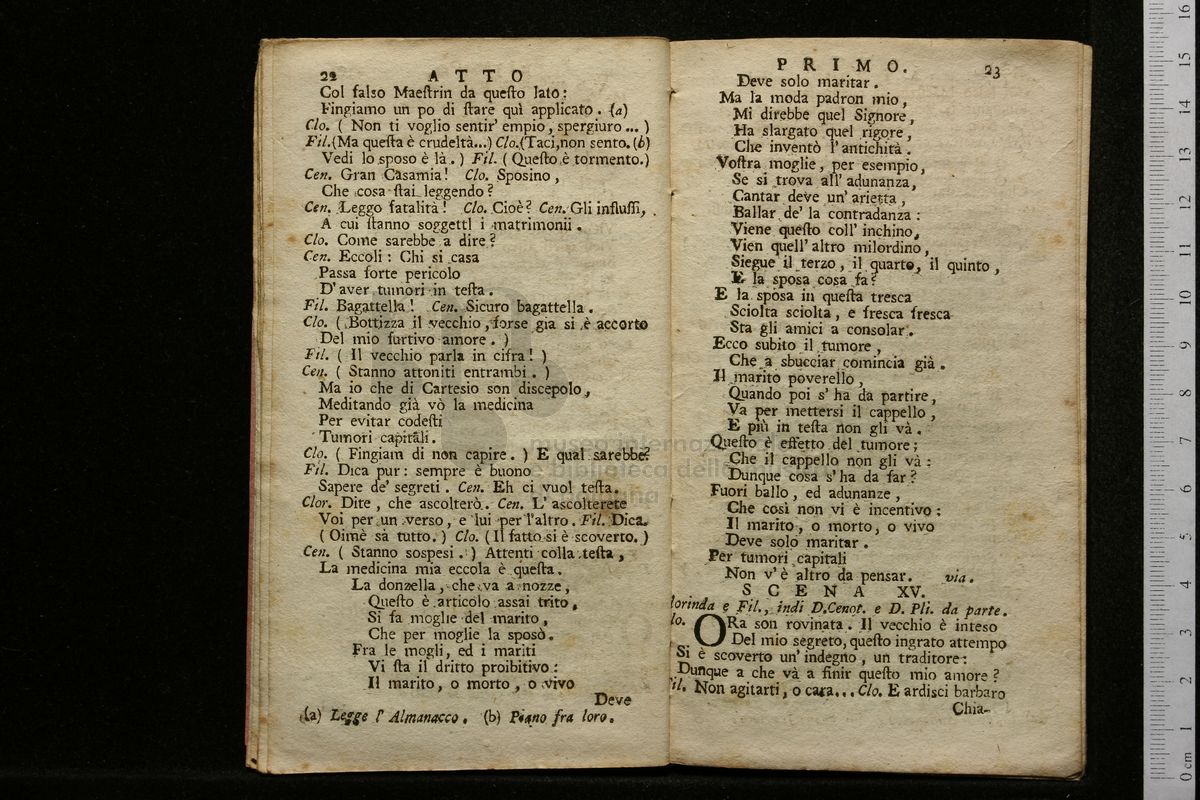 22 ATTO
Col falso Maeſtrin da queſto lato:
Fingiamo un po di ſtare quì applicato. (a)
Clo. ( Non ti voglio sentir' empio, spergiuro... )
Fil.(Ma queſta è crudeltà...) Clo.(Taci,non sento.(b)
Vedi lo sposo è là. ) Fil. ( Queſto è tormento.)
Cen. Gran Casamia! Clo. Sposino,
Che cosa ſtai leggendo?
Cen. Leggo fatalità! Clo. Cioè? Cen. Gli influſſi,
A cui ſtanno soggetti i matrimonii.
Clo. Come sarebbe a dire?
Cen. Eccoli: Chi si casa
Passa forte pericolo
D'aver tumori in teſta.
Fil. Bagattella! Cen. Sicuro bagattella.
Clo. ( Bottizza il vecchio, forse gia si è accorto
Del mio furtivo amore. )
Fil. ( Il vecchio parla in cifra! )
Cen. ( Stanno attoniti entrambi. )
Ma io che di Cartesio son discepolo,
Meditando già vò la medicina
Per evitar codeſti
Tumori capitali.
Clo. ( Fingiam di non capire. ) E qual sarebbe?
Fil. Dica pur: sempre è buono
Sapere de' segreti. Cen. Eh ci vuol teſta.
Clor. Dite, che ascolterò. Cen. L'ascolterete
Voi per un verso, e lui per l'altro. Fil. Dica.
( Oimè sà tutto. ) Clo. ( Il fatto si è scoverto. )
Cen. ( Stanno sospesi. ) Attenti colla teſta,
La medicina mia eccola è queſta.
La donzella, che va a nozze,
Queſto è articolo assai trito,
Si fa moglie del marito,
Che per moglie la sposò.
Fra le mogli, ed i mariti
Vi ſta il dritto proibitivo:
Il marito, o morto, o vivo
Deve
(a) Legge l' Almanacco. (b) Piano fra loro.
PRIMO. 23
Deve solo maritar.
Ma la moda padron mio,
Mi direbbe quel Signore,
Ha slargato quel rigore,
Che inventò l'antichità.
Voſtra moglie, per esempio,
Se si trova all' adunanza,
Cantar deve un' arietta,
Ballar de' la contradanza:
Viene queſto coll' inchino,
Vien quell' altro milordino,
Siegue il terzo, il quarto, il quinto,
E la sposa cosa fa?
E la sposa in queſta tresca
Sciolta sciolta, e fresca fresca
Sta gli amici a consolar.
Ecco subito il tumore,
Che a sbucciar comincia già.
Il marito poverello,
Quando poi s'ha da partire,
Va per mettersi il cappello,
E più in teſta non gli và.
Queſto è effetto del tumore;
Che il cappello non gli và:
Dunque cosa s'ha da far?
Fuori ballo, ed adunanze,
Che così non vi è incentivo:
Il marito, o morto, o vivo
Deve solo maritar.
Per tumori capitali
Non v'è altro da pensar. via.
SCENA XV.
lorinda e Fil., indi D.Cenot. e D. Pli. da parte.
lo. ORa son rovinata. Il vecchio è inteso
Del mio segreto, queſto ingrato attempo
Si è scoverto un' indegno, un traditore:
Dunque a che và a finir queſto mio amore?
il. Non agitarti, o cara... Clo. E ardisci barbaro
Chia-